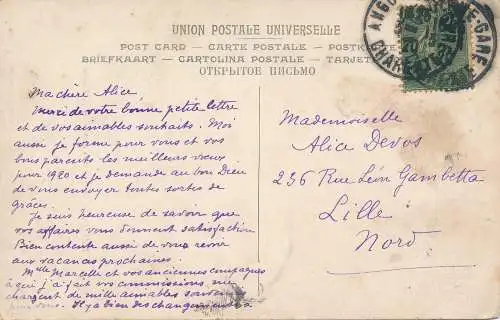 UNION POSTALE UNIVERSELLE
POST CARD — CARTE POSTALE — POSTK
BRIEFKAART — CARTOLINA POSTALE — TARJET
ОТКРЫТОЕ ПИСЬМО
GARE
Ma chère Alice
Merci de votre bonne petite lettre
et de vos aimables souhaits. Moi
aussi je forme pour vous et vos
bons parents les meilleurs vœux
pour 1920 et je demande au bon Dieu
de vous envoyer toutes sortes de
grâces.
Je suis heureuse de savoir que
vos affaires vous donnent satisfaction
Bien contente aussi de vous revoir
aux vacances prochaines.
Mlle Marcelle et vos anciennes compagnes
à qui j'ai fait vos commissions, me
chargent de mille aimables souvenirs
Il y a bien des changements à
Mademoiselle
Alice Devos
236 Rue Léon Gambetta
Lille
Nord